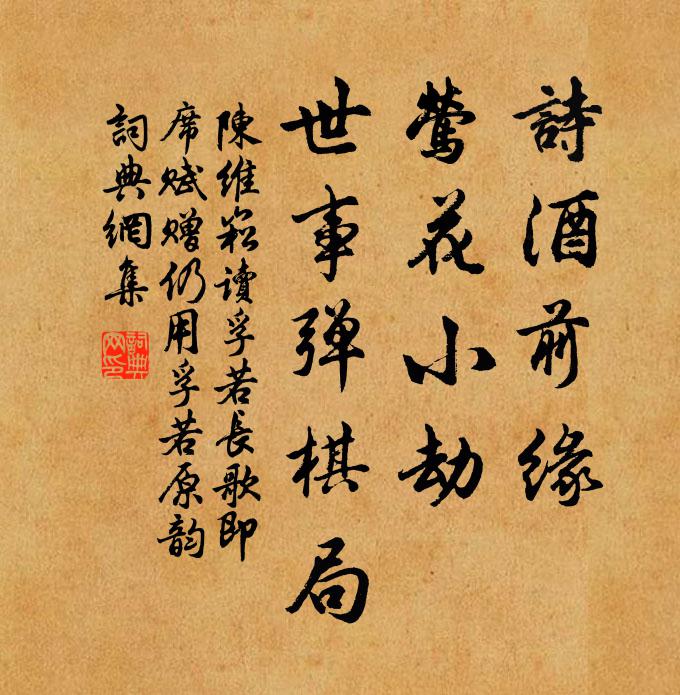 詩酒前缘
鶯花小劫
世事弹棋局
陳維崧讀孚若長歌即
席赋赠仍用孚若原韵
詞典網集
詞典
网印